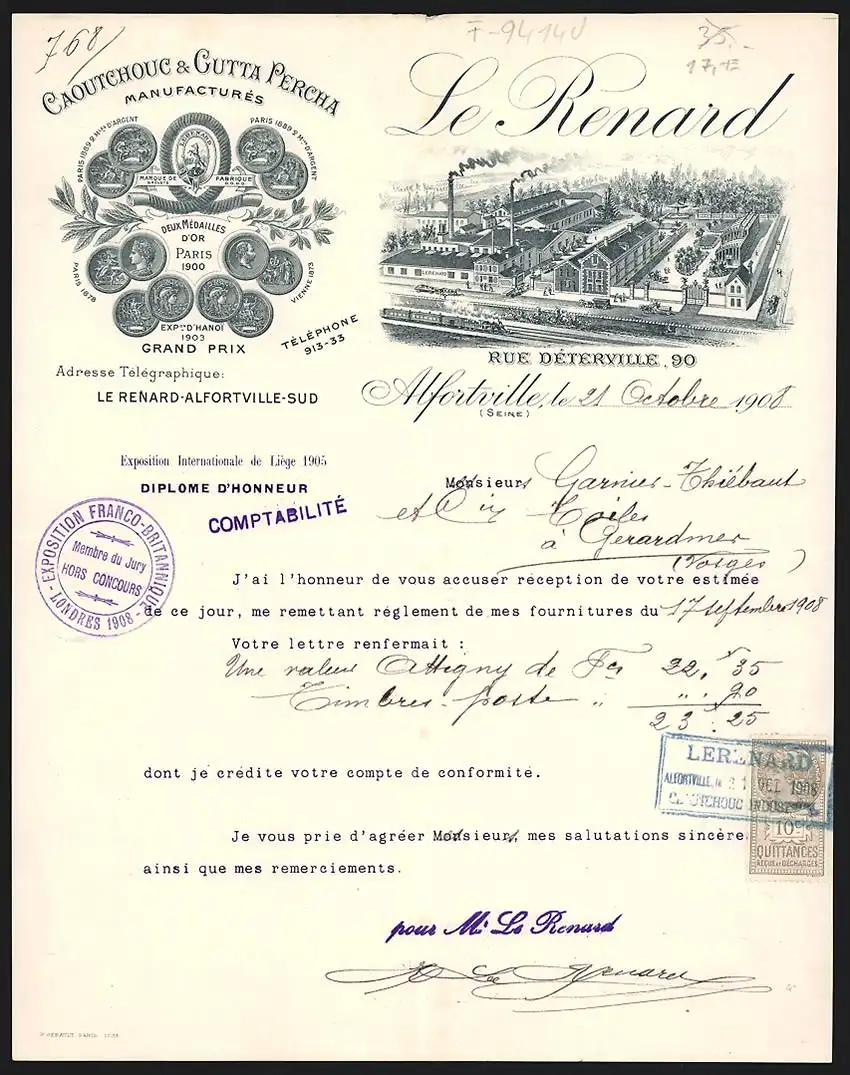 768
F-9414J
35.-
CAOUTCHOUC & GUTTA PERCHA
MANUFACTURÉS
PARIS 1889 2 Mlles D'ARGENT
PARIS 1889 2 Mlles D'ARGENT
LE RENARD
MARQUE DE FABRIQUE
DEUX MÉDAILLES
D'OR
PARIS
1900
PARIS 1878
VIENNE 1873
EXPon D'HANOÏ
1903
GRAND PRIX
TÉLÉPHONE
913-33
Adresse Télégraphique:
LE RENARD-ALFORTVILLE-SUD
Le Renard
LE RENARD
RUE DÉTERVILLE, 90
Alfortville, le 21 Octobre 1908
(SEINE)
Exposition Internationale de Liège 1905
DIPLOME D'HONNEUR
COMPTABILITÉ
EXPOSITION FRANCO-BRITANNIQUE
Membre du Jury
HORS CONCOURS
- LONDRES 1908 -
Monsieurs Garnier-Thiébaut
et Cie Toiles
à Gerardmer
(Vosges)
J'ai l'honneur de vous accuser réception de votre estimée
de ce jour, me remettant réglement de mes fournitures du 17 septembre 1908
Votre lettre renfermait :
Une valeur Attigny de Fcs 22, 35
Timbres-poste " ". 90
23. 25
dont je crédite votre compte de conformité.
LERENARD
ALFORTVILLE, le 21 OCT 1908
CAOUTCHOUC INDUSTRIEL
10c
QUITTANCES
REÇUS et DÉCHARGES
Je vous prie d'agréer Monsieurs, mes salutations sincère
ainsi que mes remerciements.
pour Mr Le Renard